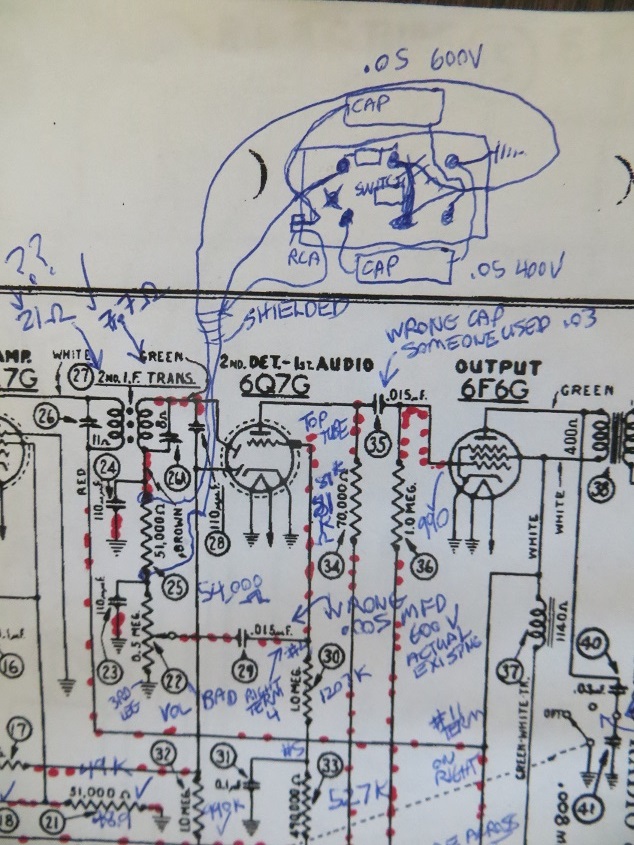 .05 600V
CAP
SWITCH
RCA
CAP
.05 400V
??
21Ω
SHIELDED
WRONG CAP
SOMEONE USED .03
AMP.
7G
WHITE
GREEN
27
2ND. I.F. TRANS.
2ND. DET.-1ST. AUDIO
6Q7G
OUTPUT
6F6G
GREEN
.015µF.
26
11Ω
8Ω
TOP
TUBE
35
400Ω
38
RED
24
26A
110µµF.
51,000Ω
BROWN
110µµF.
28
70,000Ω
34
1.0 MEG.
36
990
WHITE
WHITE
25
54,000
Ω
WRONG
.005 MFD
600 V
ACTUAL
EXISTING
110µµF.
23
0.5 MEG.
22
.015µF.
29
30
1.0 MEG.
1207K
37
1140Ω
40
3RD
LEG
VOL
BAD
RIGHT
TERM
4
#4
#11 TERM
ON
RIGHT
GREEN-WHITE-TR.
16
17
49K
32
1.0 MEG.
31
0.1µF.
#5
33
470,000Ω
527K
41
18
51,000Ω
21
48.9
990K
ACROSS